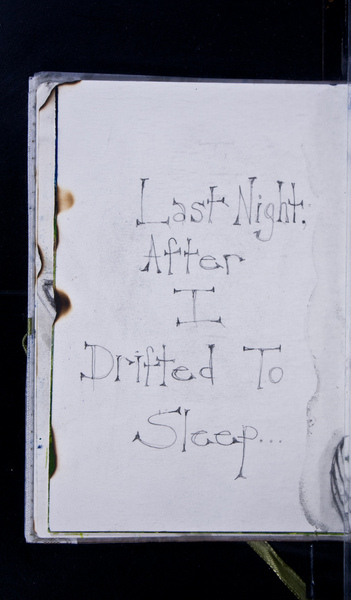 Last Night,
After
I
Drifted To
Sleep...